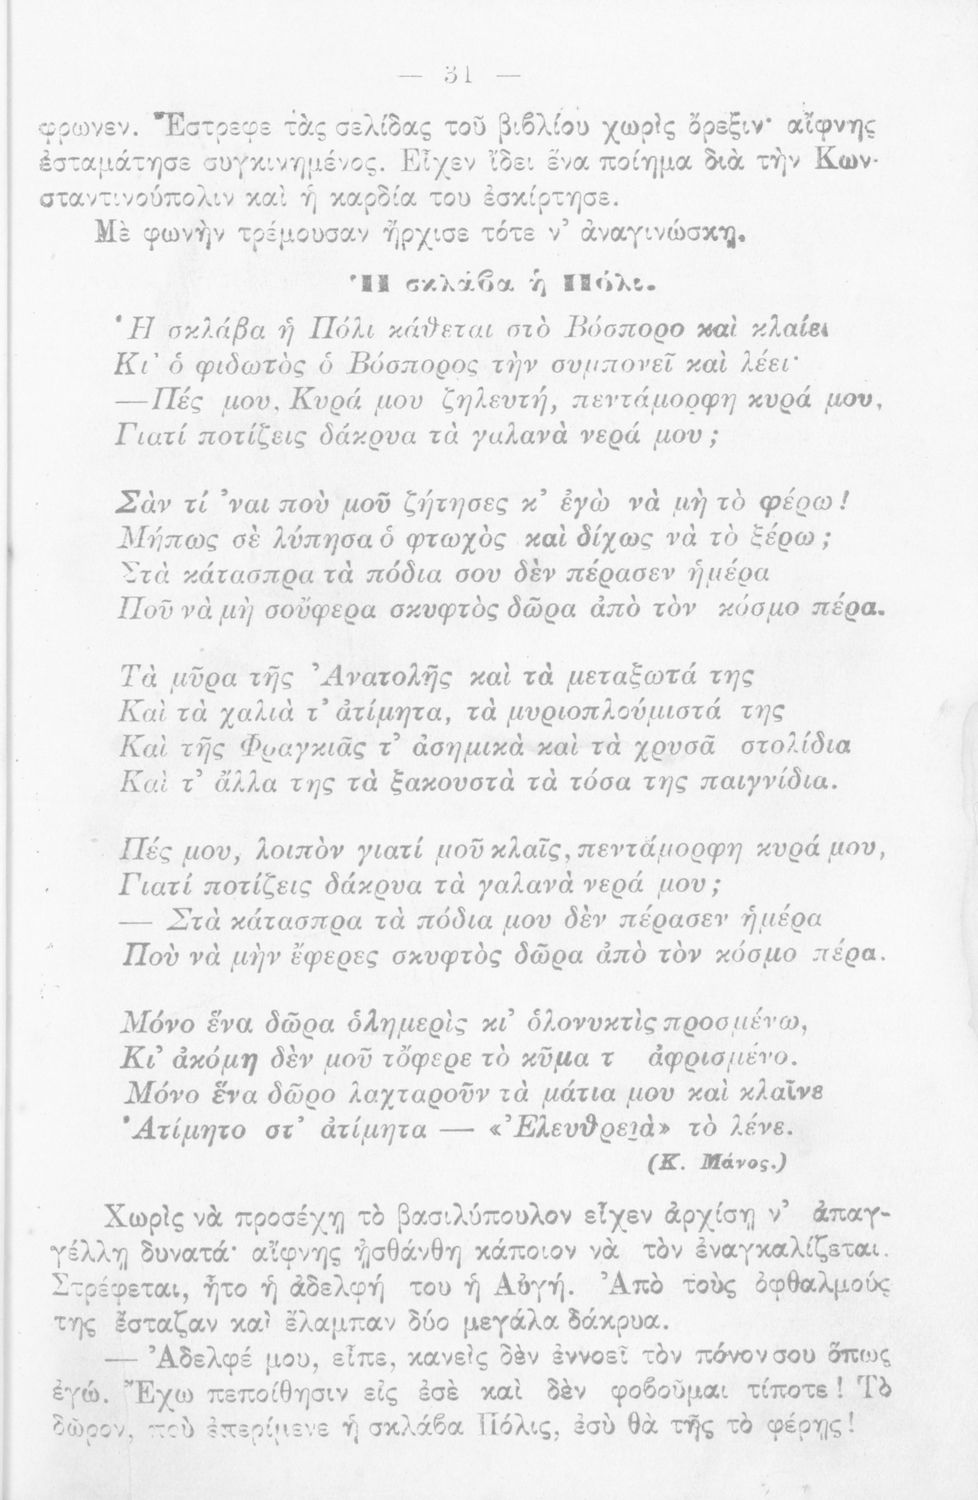 — 31 —
φρωνεν. Ἔστρεφε τὰς σελίδας τοῦ βιβλίου χωρὶς ὄρεξιν· αἴφνης
ἐσταμάτησε συγκινημένος. Εἶχεν ἴδει ἕνα ποίημα διὰ τὴν Κων-
σταντινούπολιν καὶ ἡ καρδία του ἐσκίρτησε.
Μὲ φωνὴν τρέμουσαν ἤρχισε τότε ν’ ἀναγινώσκῃ.
Ἡ σκλάβα ἡ Πόλι.
Ἡ σκλάβα ἡ Πόλι κάθεται στὸ Βόσπορο καὶ κλαίει
Κι’ ὁ φιδωτὸς ὁ Βόσπορος τὴν συμπονεῖ καὶ λέει·
—Πές μου, Κυρά μου ζηλευτή, πεντάμορφη κυρά μου,
Γιατί ποτίζεις δάκρυα τὰ γαλανὰ νερά μου;
Σὰν τί ’ναι ποὺ μοῦ ζήτησες κ’ ἐγὼ νὰ μὴ τὸ φέρω!
Μήπως σὲ λύπησα ὁ φτωχὸς καὶ δίχως νὰ τὸ ξέρω;
Στὰ κάτασπρα τὰ πόδια σου δὲν πέρασεν ἡμέρα
Ποῦ νὰ μὴ σοὔφερα σκυφτὸς δῶρα ἀπὸ τὸν κόσμο πέρα.
Τὰ μῦρα τῆς Ἀνατολῆς καὶ τὰ μεταξωτά της
Καὶ τὰ χαλιὰ τ’ ἀτίμητα, τὰ μυριοπλούμιστά της
Καὶ τῆς Φραγκιᾶς τ’ ἀσημικὰ καὶ τὰ χρυσᾶ στολίδια
Καὶ τ’ ἄλλα της τὰ ξακουστὰ τὰ τόσα της παιγνίδια.
Πές μου, λοιπὸν γιατί μοῦ κλαῖς, πεντάμορφη κυρά μου,
Γιατί ποτίζεις δάκρυα τὰ γαλανὰ νερά μου;
— Στὰ κάτασπρα τὰ πόδια μου δὲν πέρασεν ἡμέρα
Ποὺ νὰ μὴν ἔφερες σκυφτὸς δῶρα ἀπὸ τὸν κόσμο πέρα.
Μόνο ἕνα δῶρα ὁλημερὶς κι’ ὁλονυκτὶς προσμένω,
Κι’ ἀκόμη δὲν μοῦ τὄφερε τὸ κῦμα τ ἀφρισμένο.
Μόνο ἕνα δῶρο λαχταροῦν τὰ μάτια μου καὶ κλαῖνε
Ἀτίμητο στ’ ἀτίμητα — «Ἐλευθρειὰ» τὸ λένε.
(Κ. Μάνος.)
Χωρὶς νὰ προσέχῃ τὸ βασιλόπουλον εἶχεν ἀρχίσῃ ν’ ἀπαγ-
γέλλῃ δυνατά· αἴφνης ᾐσθάνθη κάποιον νὰ τὸν ἐναγκαλίζεται.
Στρέφεται, ἦτο ἡ ἀδελφή του ἡ Αὐγή. Ἀπὸ τοὺς ὀφθαλμούς
της ἔσταζαν καὶ ἔλαμπαν δύο μεγάλα δάκρυα.
— Ἀδελφέ μου, εἶπε, κανεὶς δὲν ἐννοεῖ τὸν πόνον σου ὅπως
ἐγώ. Ἔχω πεποίθησιν εἰς ἐσὲ καὶ δὲν φοβοῦμαι τίποτε! Τὸ
δῶρον, ποὺ ἐπερίμενε ἡ σκλάβα Πόλις, ἐσὺ θὰ τῆς τὸ φέρῃς!